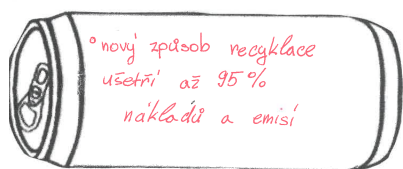 ° nový způsob recyklace
ušetří až 95%
nákladů a emisí